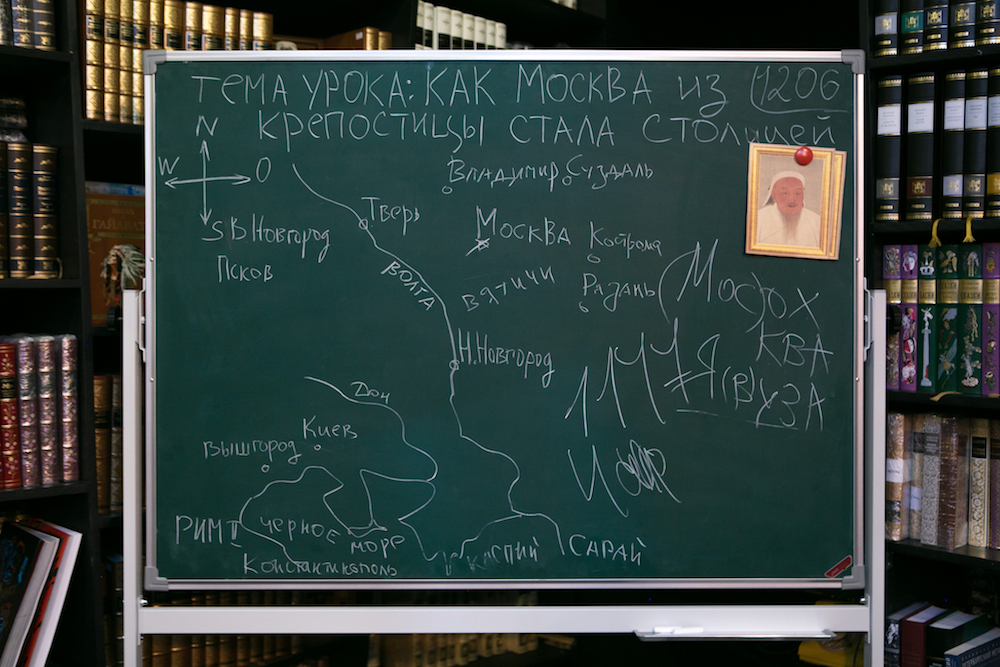 ТЕМА УРОКА: КАК МОСКВА ИЗ 1206
КРЕПОСТИЦЫ СТАЛА СТОЛИЦЕЙ
N
W O
S
Владимир Суздаль
Тверь
Москва Кострома
В.Новгород
Псков
ВОЛГА
ВЯТИЧИ
Рязань
Мосох
КВА
Н.Новгород
1147
Я(В)ХЗА
Дон
Киев
Вышгород
РИМ II
ЧЕРНОЕ
МОРЕ
КАСПИЙ
САРАЙ
Константинополь
ГАЙАВАТ